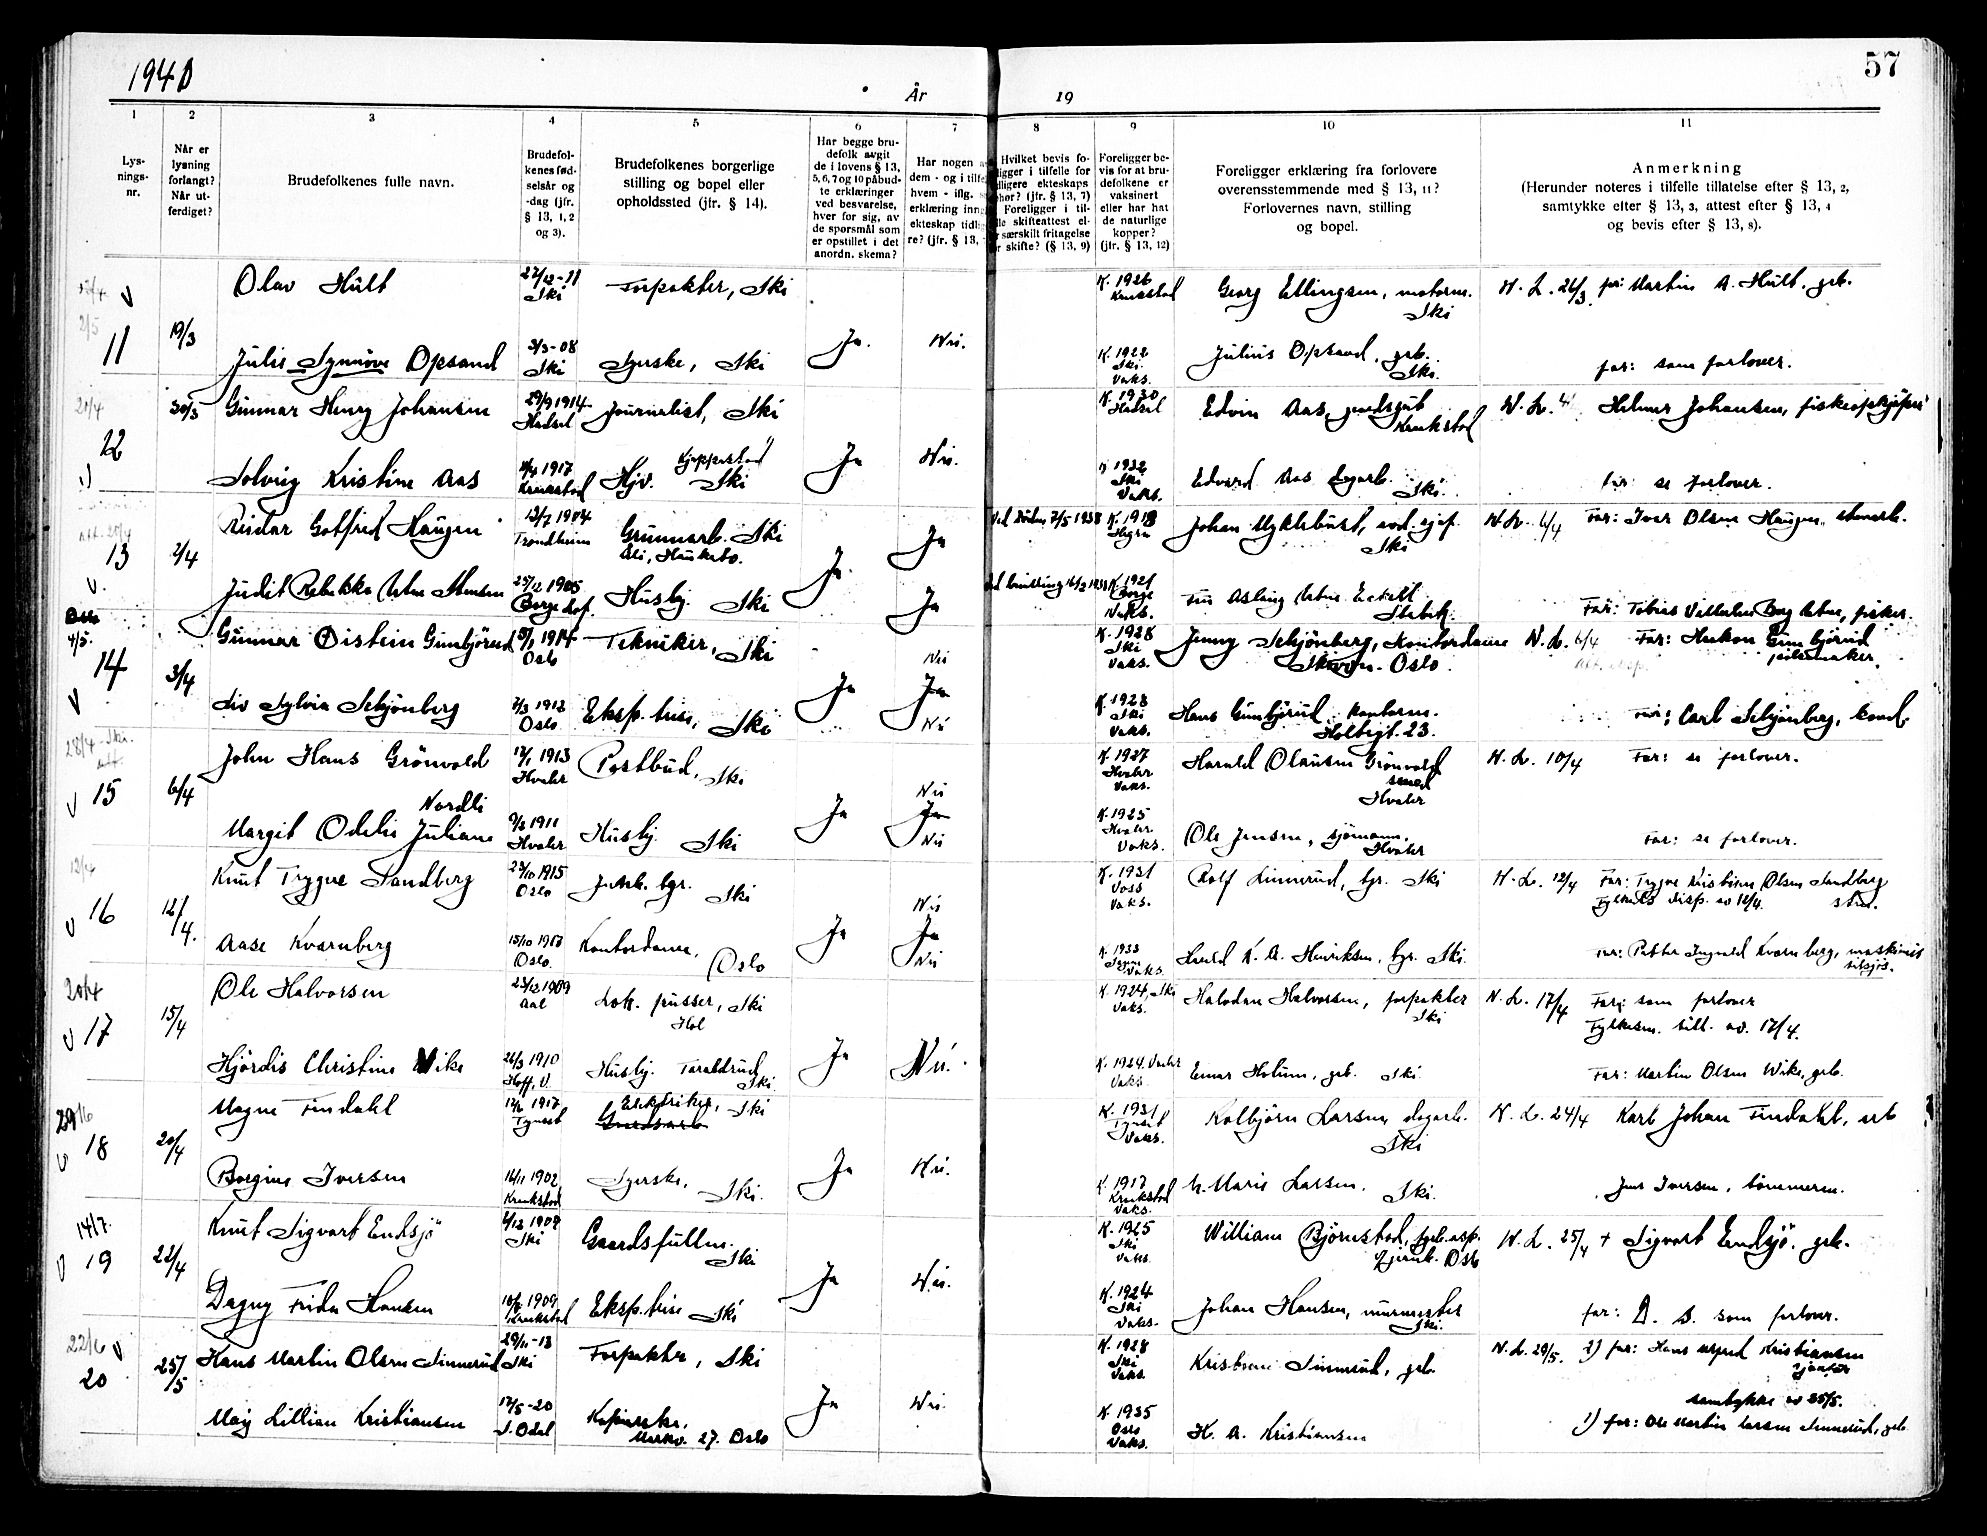 1940
År
19
57
1
2
3
4
5
6
7
8
9
10
11
Lys-
nings-
nr.
Når er
lysning
forlangt?
Når ut-
ferdiget?
Brudefolkenes fulle navn.
Brudefol-
kenes fød-
selsår og
-dag (jfr.
§ 13, 1, 2
og 3).
Brudefolkenes borgerlige
stilling og bopel eller
opholdssted (jfr. § 14).
Har begge bru-
defolk avgit
de i lovens § 13,
5, 6, 7 og 10 påbud-
te erklæringer
ved besvarelse,
hver for sig, av
de spørsmål som
er opstillet i det
anordn. skema?
Har nogen a
dem - og i tilfe
hvem - iflg.
erklæring inng
ekteskap tidlig
re? (jfr. § 13,
Hvilket bevis fo-
ligger i tilfelle for
dligere ekteskaps
phør? (jfr. § 13, 7)
Foreligger i til-
lle skifteattest el-
r særskilt fritagelse
r skifte? (§ 13, 9)
Foreligger be-
vis for at bru-
defolkene er
vaksinert
eller har hat
de naturlige
kopper?
(jfr. § 13, 12)
Foreligger erklæring fra forlovere
overensstemmende med § 13, 11?
Forlovernes navn, stilling
og bopel.
Anmerkning
(Herunder noteres i tilfelle tillatelse efter § 13, 2,
samtykke efter § 13, 3, attest efter § 13, 4
og bevis efter § 13, 8).
11
19/3
Olav Hult
27/12-11
Ski
Forpakter, Ski
K. 1926
Kraakstad
Georg Ellingsen, motorm.
Ski
N. L. 26/3.
far: Martin A. Hult, grb.
Julie Synnöve Opsand
3/3-08
Ski
Syerske, Ski
Ja.
Nei.
K. 1922
Ski.
Vaks.
Julius Opsand, grb.
Ski.
far: som forlover.
22
30/3
Gunnar Henry Johansen
29/9 1914
Hadsel
Journalist, Ski
K. 1930
Hadsel
Edvin Aas, gaardsgut
Kraakstad
Helmer Johansen,
Solveig Kristine Aas
1917
Kraakstad
Hjv.
Ski
Ja
Nei.
1932
Ski
Vaks.
Edvard Aas
Ski.
far: se forlover.
13
2/4
Reidar Gotfred Haugen
13/7 1904
Trondheim
Ski
Ja
K. 1918
Hegra
Ski
N. L. 6/4
Far: Iver Olsen Haugen
Judit Rebekka
25/12 1905
Borge Lof.
Husbj. Ski
Ja.
Ja
K. 1921
Borge
Vaks.
Fru Aslaug
Stabekk
Far: Tobias Vilhelm
fisker.
Oslo
4/5.
14
3/4
Gunnar Øistein Gunbjörud
1914
Oslo
Tekniker, Ski
Nei
K. 1928
Ski
Vaks.
Jenny Schjönberg, Kontordame
Oslo.
N. L. 6/4
Far: Haakon Gunbjörud
Liv Sylvia Schjönberg
7/3 1912
Oslo
Eksp.trise, Ski
Ja
Ja
Nei
K. 1928
Ski
Vaks.
Hans Gunbjörud, kontorm.
Holbergt. 23.
Far: Carl Schjönberg, kond.
28/4 Ski.
15
6/4
John Hans Grönvold
17/1 1913
Hvaler
Postbud, Ski
Nei
K. 1927
Hvaler
Vaks.
Harald Olausen Grönvold
smed
Hvaler
N. L. 10/4
Far: se forlover.
Nordli
Margit Odelie Juliane
9/3 1911
Hvaler
Husbj. Ski
Ja
Ja
Nei
K. 1925
Hvaler
Vaks.
Ole Jensen, sjömann.
Hvaler
Far: se forlover.
12/4
16
12/4.
Knut Trygve Sandberg
23/10 1915
Oslo
Ski
Nei
K. 1931
Voss
Vaks.
Rolf Linnerud, Ski
N. L. 12/4
Far: Trygve Kristian Olsen Sandberg
Fylkets disp. av 12/4.
Aase Kvarnberg
15/10 1917
Oslo.
Kontordame,
Oslo
Ja
Ja
Nei
K. 1933
Vaks.
Harald K. A. Henriksen, Ski.
Far: Petter Ingvald Kvarnberg, maskinist
20/4
17
15/4
Ole Halvorsen
23/12 1909
Aal
Lok. pusser, Ski
Hol
K. 1924, Ski
Vaks.
Halvdan Halvorsen, forpakter
Ski
N. L. 17/4
Far: som forlover
Fylkesm. till. av. 17/4.
Hjördis Christine Wike
26/3 1910
Hoff, V.
Husbj. Taraldrud
Ski.
Ja
Nei.
K. 1924. Vaaler
Vaks.
Einar Holum, grb. Ski.
Far: Martin Olsen Wike, grb.
18
20/4
Magne Tindahl
1917
Tynset
Elektriker, Ski
K. 1931
Tynset
Vaks.
Kolbjörn Larsen,
Ski
N. L. 24/4
Karl Johan Tindahl, arb
Borgine Iversen
16/11 1902
Kraakstad
Syerske, Ski.
Ja
Nei.
K. 1917
Kraakstad
Vaks.
Marie Larsen, Ski.
Jens Iversen, tömmerm.
14/7.
19
22/4
Knut Sigvart Endsjö
Ski
Gaardsfullm.
Ski
K. 1925
Ski
Vaks.
William Björnstad,
Oslo
N. L. 25/4
+ Sigvart Endsjö. grb.
Dagny Frida Hansen
1909
Kraakstad
Eksp.trise Ski
Ja
Nei.
K. 1924
Ski
Vaks.
Johan Hansen, murmester
Ski.
far: D. s. som forlover.
22/6
20
25/5
Hans Martin Olsen Finnerud
29/11-13
Ski
Forpakter, Ski
K. 1928
Ski
Vaks.
Kristian Finnerud, grb.
N. L. 29/5.
2) far: Hans Kristiansen
samtykke av 25/5.
Maij Lillian Kristiansen
17/5-20
Markv. 27. Oslo
Ja
Nei.
K. 1935
Oslo
Vaks.
H. A. Kristiansen
1) far: Ole Martin Larsen Finnerud, grb.